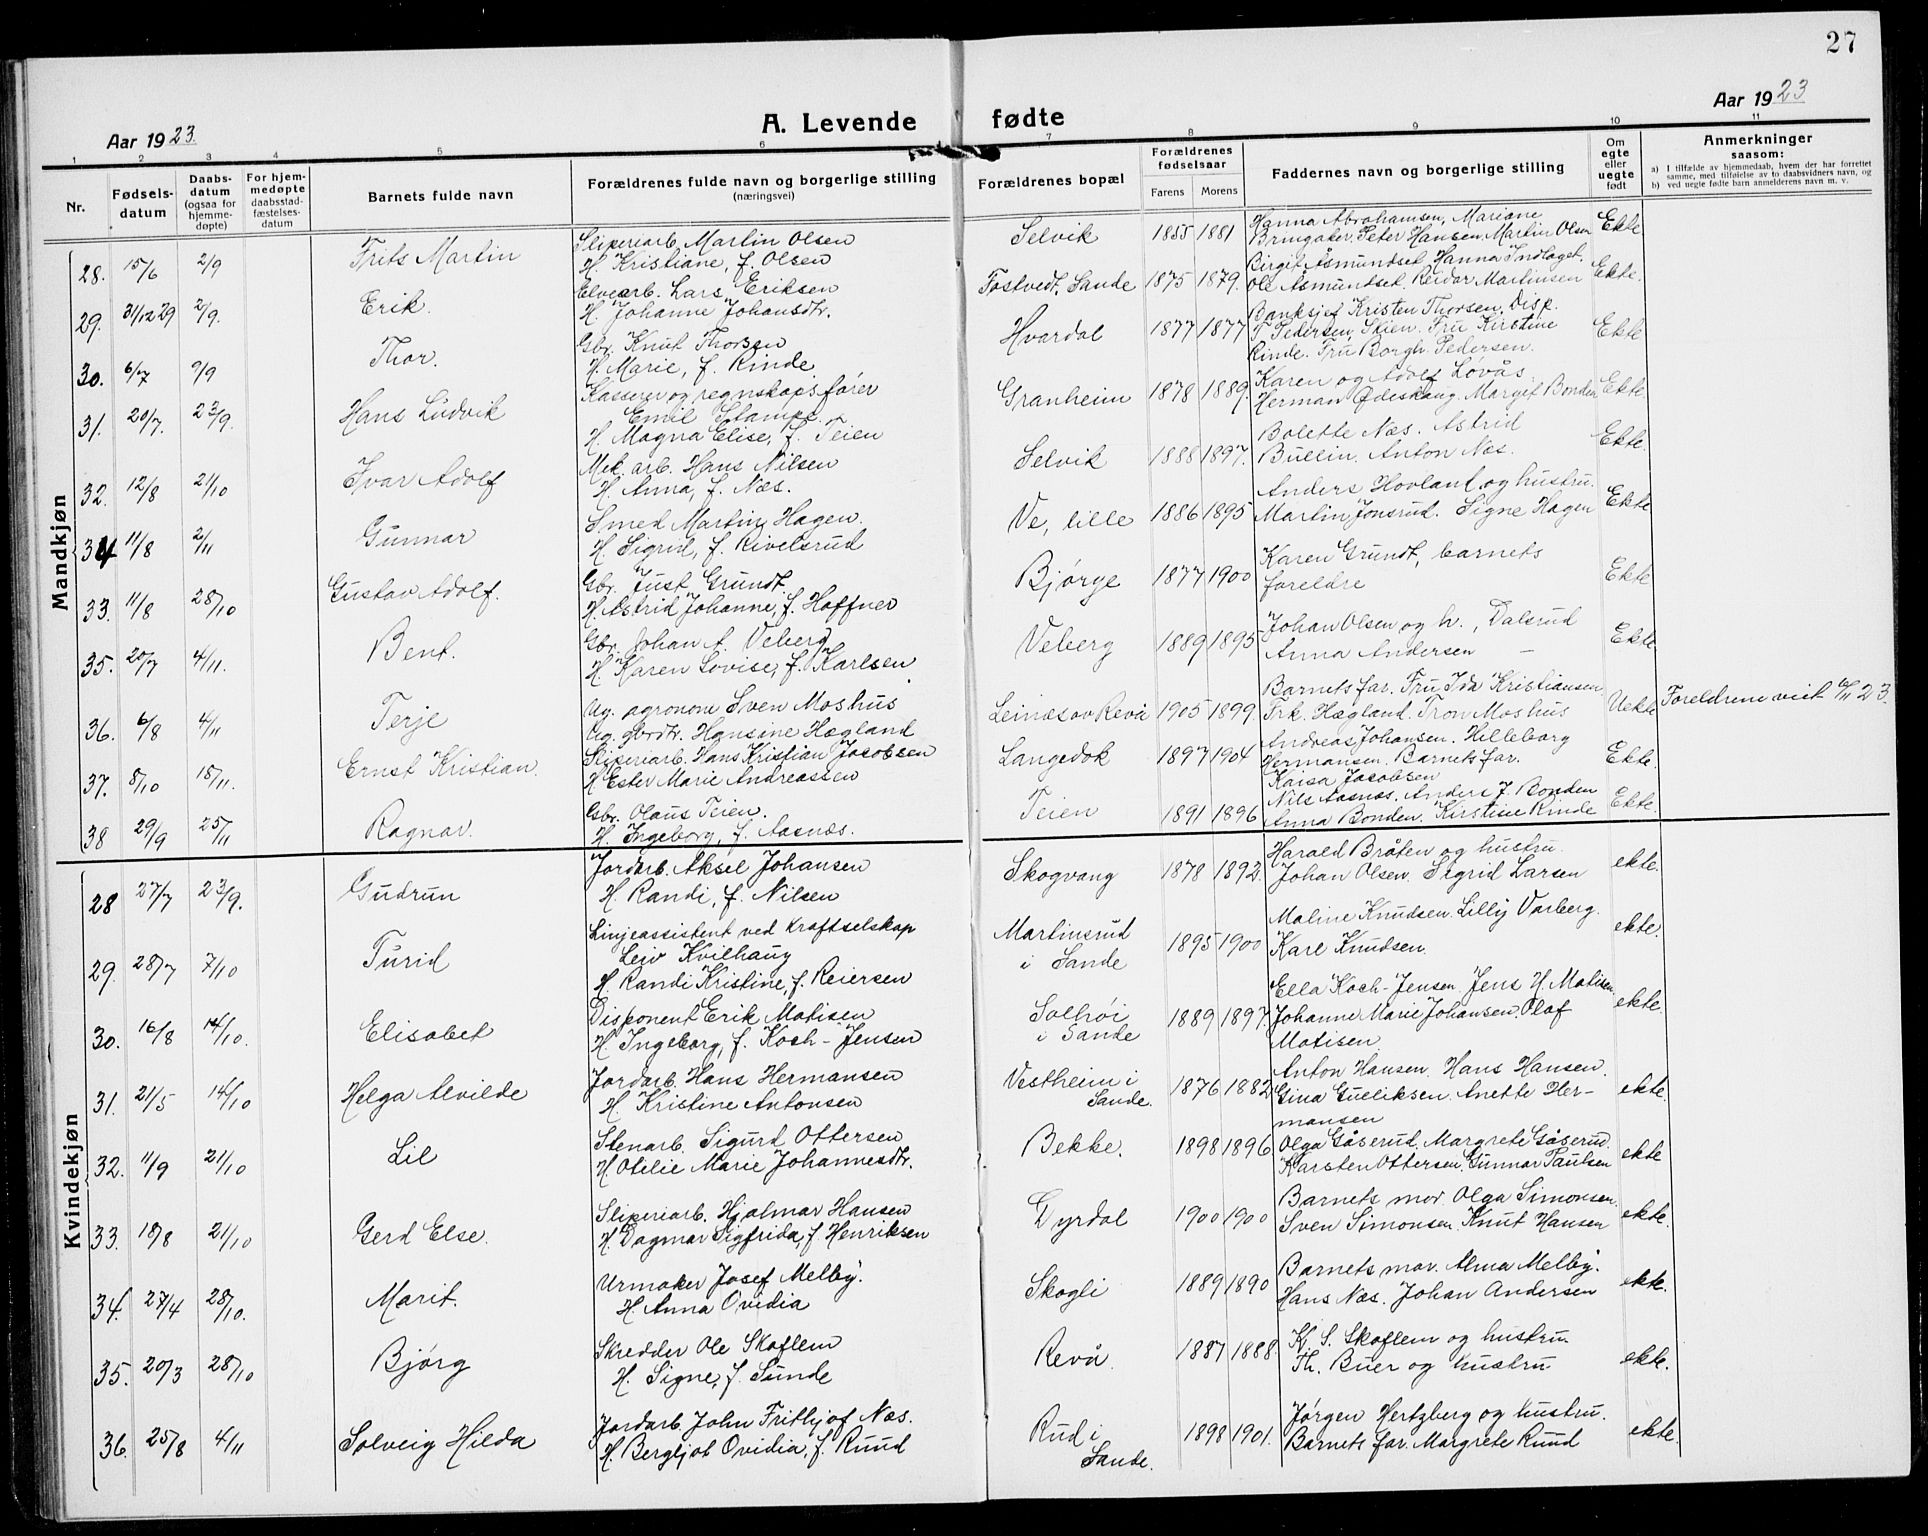 27
Aar 1923
A. Levende fødte
Aar 1923
1 2 3 4 5 6 7 8 9 10 11
Nr.
Fødsels-
datum
Daabs-
datum
(ogsaa for
hjemme-
døpte)
For hjem-
medøpte
daabsstad-
fæstelses-
datum
Barnets fulde navn
Forældrenes fulde navn og borgerlige stilling
(næringsvei)
Forældrenes bopæl
Forældrenes
fødselsaar
Farens Morens
Faddernes navn og borgerlige stilling
Om
egte
eller
uegte
født
Anmerkninger
saasom:
a) I tilfælde av hjemmedaab, hvem der har forrettet
samme, med tilføielse av to daabsvidners navn, og
b) ved uegte fødte barn anmelderens navn m. v.
Mandkjøn
28. 15/6 2/9 Frits Martin
Sliperiarb. Martin Olsen
H. Kristiane, f. Olsen
Selvik 1855 1881
Hanna Abrahamsen, Mariane
Bringaker. Peter Hansen. Martin Olsen
Ekte
29. 31/12 29 2/9. Erik.
Elvearb. Lars Eriksen
H. Johanne Johansdtr.
Tostvedt, Sande 1875 1879.
Birgit Åsmundset. Hanna Indlaget.
Ole Åsmundset. Reidar Martinsen
Ekte.
30. 6/7 9/9 Thor.
Gbr. Knut Thorsen
H. Marie, f. Rinde
Hvardal 1877 1877
Banksjef Kristen Thorsen, Disp.
T. Pedersen, Skien. Fru Kirstine
Rinde. Fru Borgh. Pedersen.
Ekte
31. 20/7. 23/9. Hans Ludvik
Kasserer og regnskapsfører
Emil Stamps.
H. Magna Elise, f. Teien
Granheim 1878 1889.
Karen og Adolf Løvås.
Herman Ødeskaug. Margit Bonden
Ekte.
32. 12/8 21/10 Ivar Adolf
Mek. arb. Hans Nilsen
H. Anna, f. Næs.
Selvik 1888 1897.
Bolette Næs. Astrid
Bullin. Anton Næs.
Ekte.
34 11/8 2/11 Gunnar
Smed Martin Hagen.
H. Sigrid, f. Rivelsrud
Ve, lille 1886 1895
Anders Hovland og hustru.
Martin Jonsrud. Signe Hagen
Ekte
33. 11/8 28/10 Gustav Adolf.
Gbr. Just Grundt.
H. Astrid Johanne, f. Haffner
Bjørge 1877 1900
Karen Grundt, barnets
foreldre
Ekte
35. 20/7 4/11. Bent.
Gbr. Johan A. Veberg
H. Karen Lovise, f. Karlsen
Veberg 1889 1895
Johan Olsen og h., Dalsrud
Anna Andersen —
Ekte
36. 6/8 4/11 Terje
Ug. agronom Sven Moshus
Ug. gbrdtr. Hansine Hægland
Leinæs av Revå 1905 1899.
Barnets far. Fru Ida Kristiansen
Frk. Hægland. Tron Moshus
Uekte
Foreldrene viet 6/11 23.
37. 8/10 18/11. Ernst Kristian.
Sliperiarb. Hans Kristian Jacobsen
H. Ester Marie Andreassen
Langedok 1897 1904
Andreas Johansen. Hilleborg
Hermansen. Barnets far.
Kaisa Jacobsen
Ekte.
38 29/9 25/11 Ragnar.
Gbr. Olaus Teien.
H. Ingeborg, f. Aasnæs.
Teien 1891 1896
Nils Aasnæs. Anders J. Bonden
Anna Bonden. Kirstine Rinde
Ekte.
Kvindekjøn
28 27/7 23/9. Gudrun
Jordarb. Aksel Johansen
H. Randi, f. Nilsen
Skogvang 1878 1892.
Harald Bråten og hustru.
Johan Olsen. Sigrid Larsen
ekte.
29. 28/7 7/10 Turid
Linjeassistent ved kraftselskap
Leiv Kvilhaug
H. Randi Kristine, f. Reiersen
Martinsrud
i Sande
1895 1900
Maline Knudsen. Lilly Varberg.
Kare Knudsen.
ekte.
30. 16/8 14/10. Elisabet
Disponent Erik Matisen
H. Ingeborg, f. Koch-Jensen
Solhøi
i Sande
1889 1897
Ella Koch-Jensen. Jens H. Matisen.
Johanne Marie Johansen. Olaf
Matisen.
ekte.
31. 21/5 14/10 Helga Alvilde
Jordarb. Hans Hermansen
H. Kristine Antonsen
Vestheim i
Sande.
1876 1882
Anton Hansen. Hans Hansen.
Gina Gulliksen. Anette Her-
mansen
ekte.
32. 11/9 21/10 Lil
Stenarb. Sigurd Ottersen
H. Otilie Marie Johannesdtr.
Bekke. 1898 1896
Olga Gåserud. Margrete Gåserud.
Karsten Ottersen. Gunnar Paulsen
ekte
33. 18/8 21/10 Gerd Else.
Sliperiarb. Hjalmar Hansen
H. Dagmar Sigfrida, f. Henriksen
Dyrdal 1900 1900
Barnets mor. Olga Simonsen.
Sven Simonsen. Knut Hansen
ekte.
34. 27/4 28/10. Marit.
Urmaker Josef Melby.
H. Anna Ovidia
Skogli 1889 1890
Barnets mor. Alma Melby.
Hans Næs. Johan Andersen
ekte.
35. 20/3 28/10 Bjørg
Skredder Ole Skoflem
H. Signe, f. Sunde
Revå. 1887 1888.
K. S. Skoflem og hustru.
Th. Buer og hustru
ekte.
36. 25/8 4/11 Solveig Hilda
Jordarb. John Frithjof Næs.
H. Bergljot Ovidia, f. Ruud
Rud i
Sande.
1898 1901.
Jørgen Hertzberg og hustru.
Barnets far. Margrete Ruud
ekte.